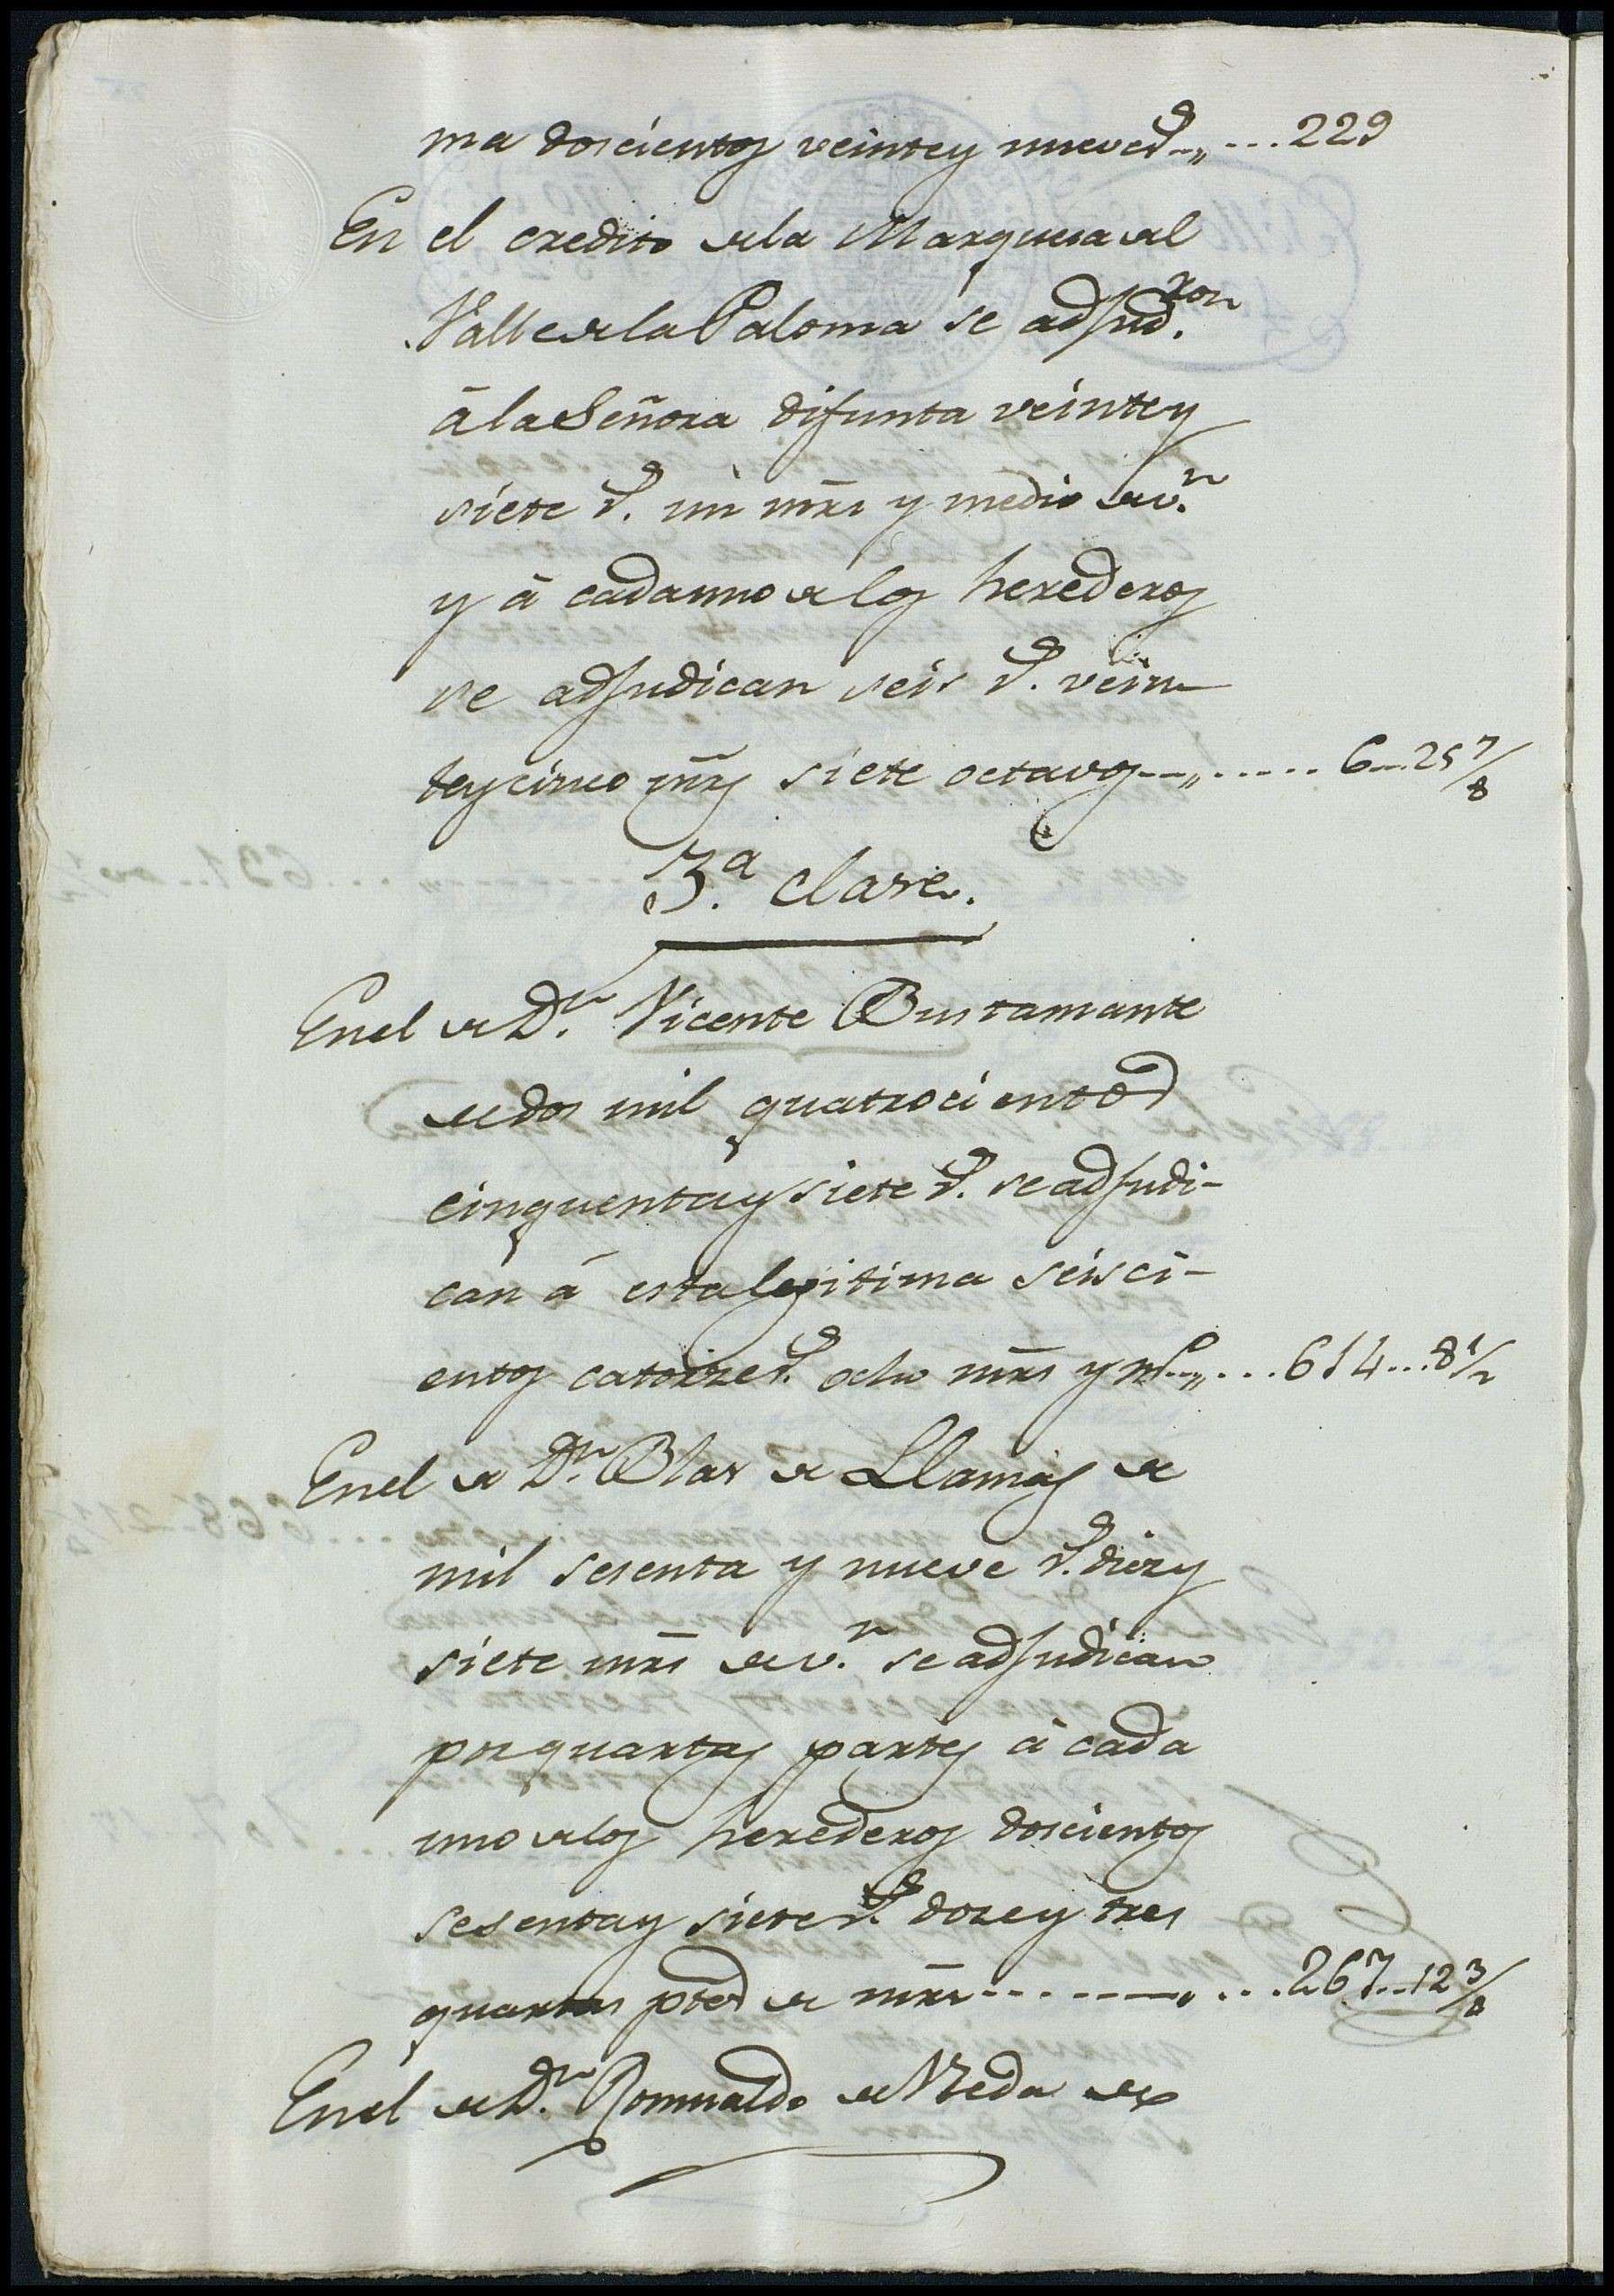 ma doscientos veinte y nueve rs..,,...229
En el credito de la Marquesa del
Valle de la Paloma se adjud.ron
á la Señora difunta veinte y
siete rs. un mrs y medio de v.n
y á cada uno de los herederos
se adjudican seis rs. vein
te y cinco mrs siete octavos..,,.....6..25 7/8
3.a clase.
En el de D.n Vicente Bustamante
de dos mil quatrocientos
cinquenta y siete rs. se adjudi-
can á esta legitima seisci-
entos catorze rs. ocho mrs y mo..,,...614...8 1/2
En el de D.n Blas de Llamas de
mil sesenta y nueve rs. diez y
siete mrs de v.n se adjudican
por quartas partes á cada
uno de los herederos doscientos
sesenta y siete rs. doze y tres
quartas ptes de mrs........,,...267..12 3/4
En el de D.n Romualdo de Uzeda de